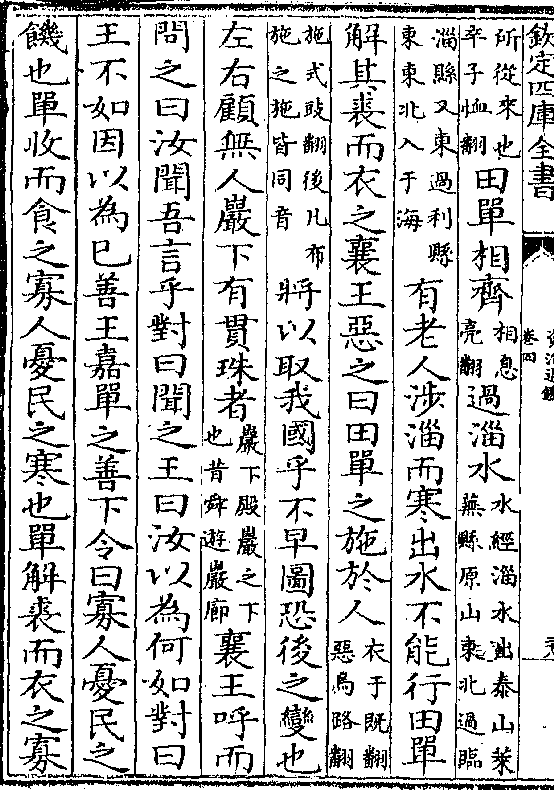 欽定四庫全書
資治通鑑
卷四
所從來也卒子恤翻田單相齊相息亮翻過淄水水經淄水出泰山萊蕪縣原山東北過臨
淄縣又東過利縣東東北入于海有老人涉淄而寒出水不能行田單
解其裘而衣之襄王惡之曰田單之施於人衣于既翻惡烏路翻
施式豉翻後凡布施之施皆同音將以取我國乎不早圖恐後之變也
左右顧無人巖下有貫珠者巖下殿巖之下也昔舜遊巖廊襄王呼而
問之曰汝聞吾言乎對曰聞之王曰汝以為何如對曰
王不如因以為已善王嘉單之善下令曰寡人憂民之
饑也單收而食之寡人憂民之寒也單解裘而衣之寡